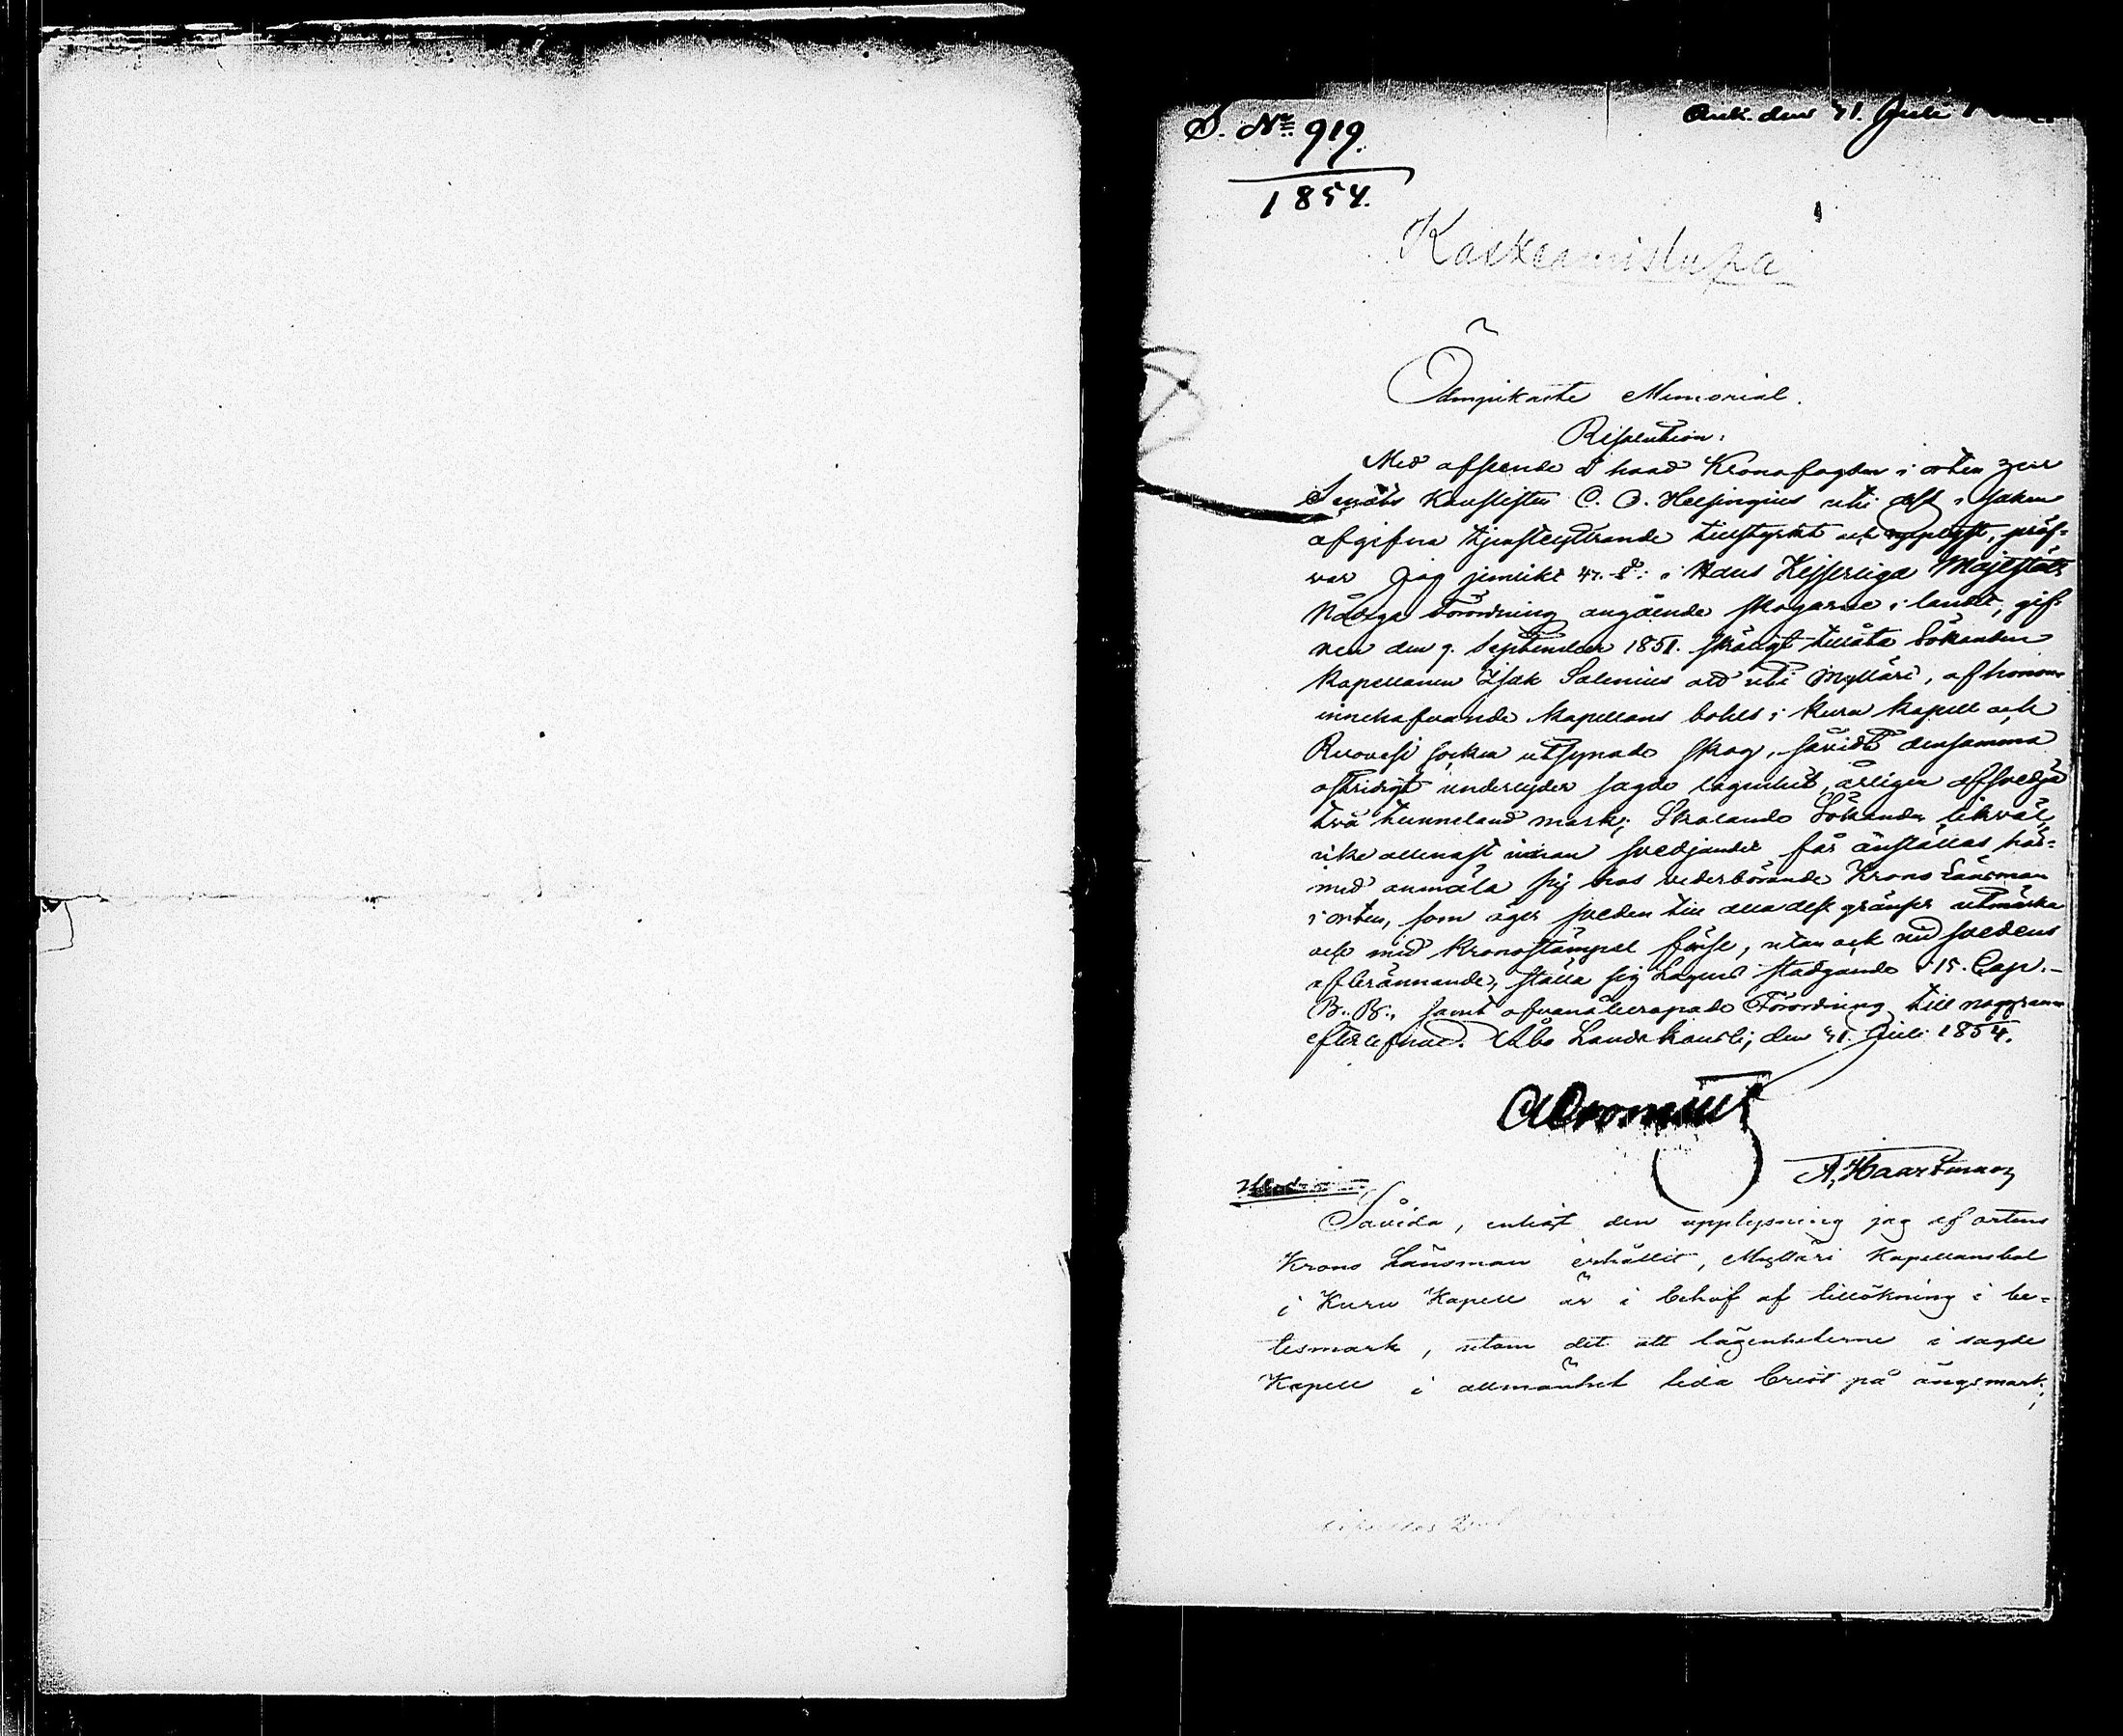 S. No 919.
1854.
Ank. den 31. Juli
Kaskeamislupa
Ödmjukaste Memorial.
Resolution:
Med afseende å hvad Kronofogden i orten
Senats Kanslisten C. O. Helsingius uti dess i saken
afgifna tjensteyttrande tillstyrkt och upplyst, pröf-
var jag jemlikt 47. §. i Hans Kejserliga Majestäts
Nådiga Förordning angående skogarne i landet, gif-
ven den 9. September 1851. skäligt tillåta Sökanden
Kapellanen Isak Salenius att uti Mylläri, af honom
innehafvande Kapellans bohls i Kuru Kapell och
Ruovesi socken utsynade skog, såvidt densamma
ostridigt underlyder sagde lägenhet, årligen afsvedja
två tunneland mark; Skolande Sökanden likväl,
icke allenast innan svedjandet får anställas här-
med anmäla sig hos vederbörande Krono Länsman
i orten, som äger sveden till alla dess gränser utmärka
och med Kronostämpel förse, utan ock vid svedens
afbrännande, ställa sig Lagens stadgande i 15. Cap.
B. B., samt ofvanåberopade Förordning till noggrann
efterlefnad. Åbo Landskansli, den 31. Juli 1854.
A. Haartman
Såvida, enligt den upplysning jag af ortens
Krono Länsman erhållit, Mylläri Kapellansbol
i Kuru Kapell är i behof af tillökning i be-
tesmark, utom det att lägenheterne i sagde
Kapell i allmänhet lida brist på ängsmark;